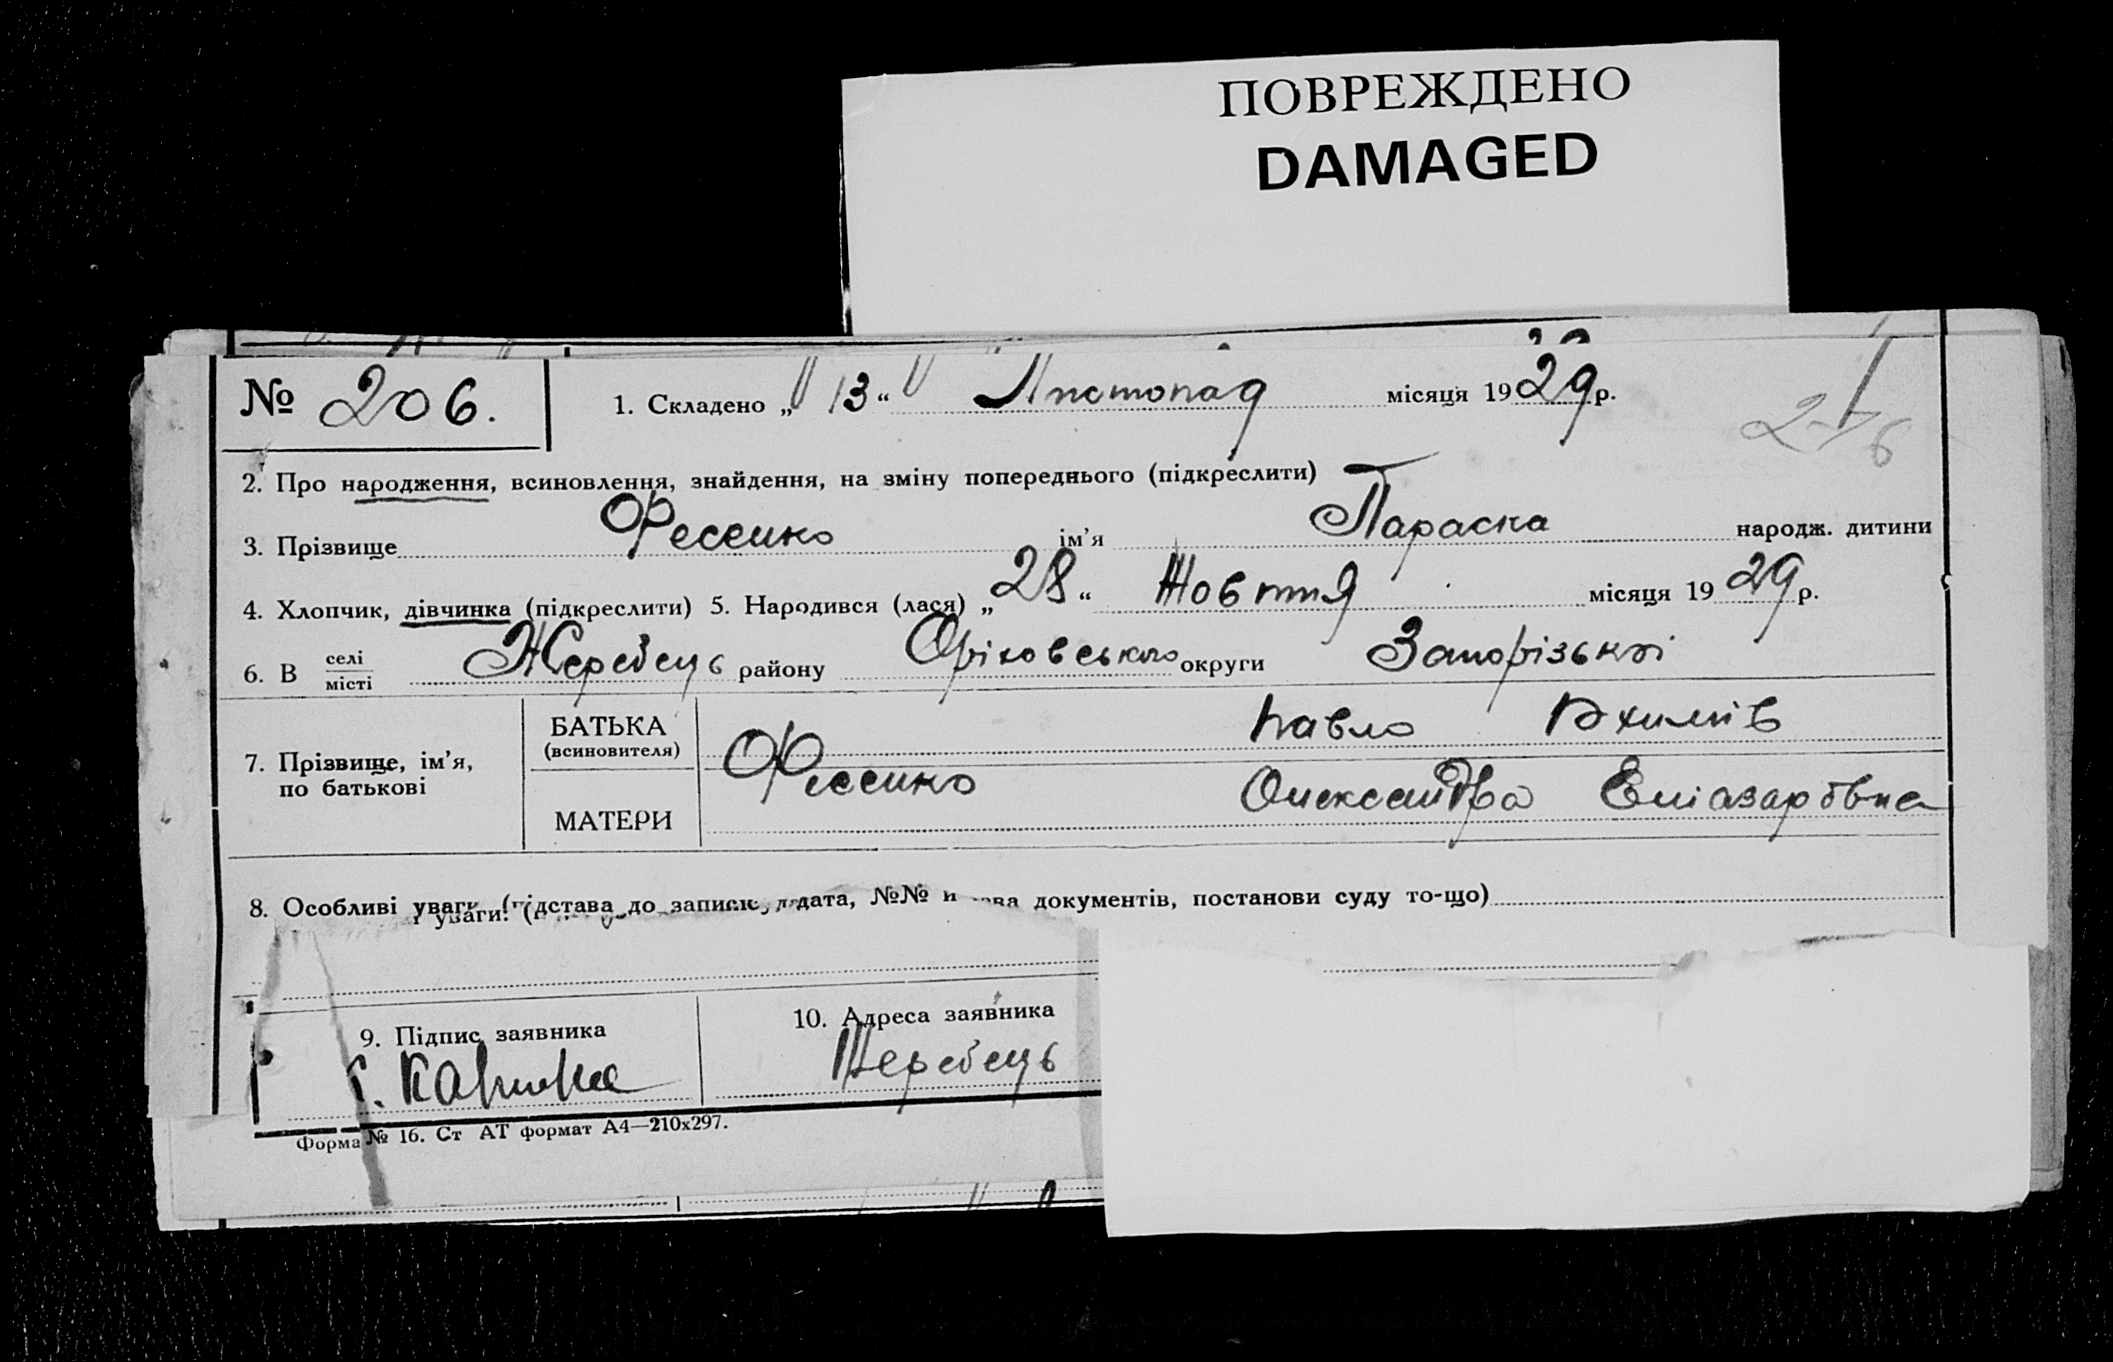 ПОВРЕЖДЕНО
DAMAGED
№ 206.
1. Складено „ 13 “ Листопад місяця 1929 р.
2. Про народження, всиновлення, знайдення, на зміну попереднього (підкреслити)
3. Прізвище Фесенко ім'я Параска народж. дитини
4. Хлопчик, дівчинка (підкреслити) 5. Народився (лася) „ 28 “ Жовтня місяця 1929 р.
6. В селі місті Жеребець району Оріховського округи Запорізької
7. Прізвище, ім'я, по батькові
БАТЬКА (всиновителя) Фесенко Павло
МАТЕРИ Олександра Еліазаровна
8. Особливі уваги (підстава до запису, дата, №№ документів, постанови суду то-що)
9. Підпис заявника
10. Адреса заявника
Жеребець
Форма № 16. Ст АТ формат А4—210х297.